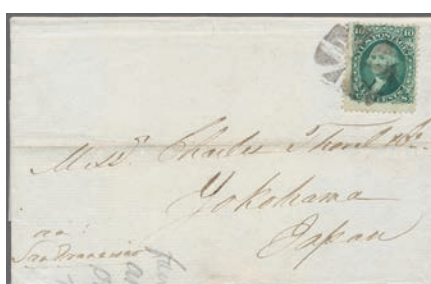 10 10
Messrs. Charles Thorel &Co.
Yokohama
Japan
via
San Francisco